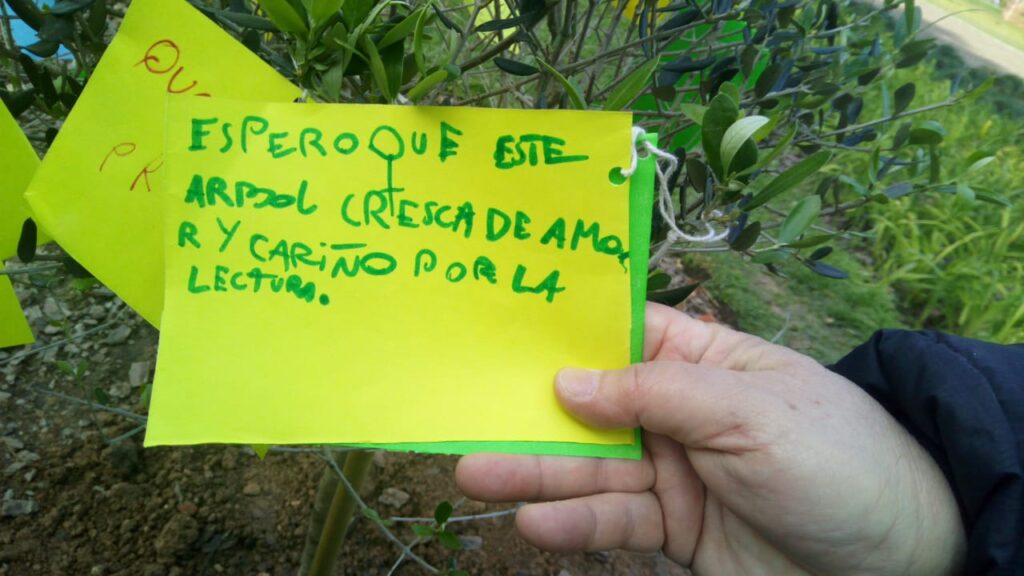 QU
PR
ESPERO QUE ESTE
ARBOL CREZCA DE AMO
R Y CARIÑO POR LA
LECTURA.